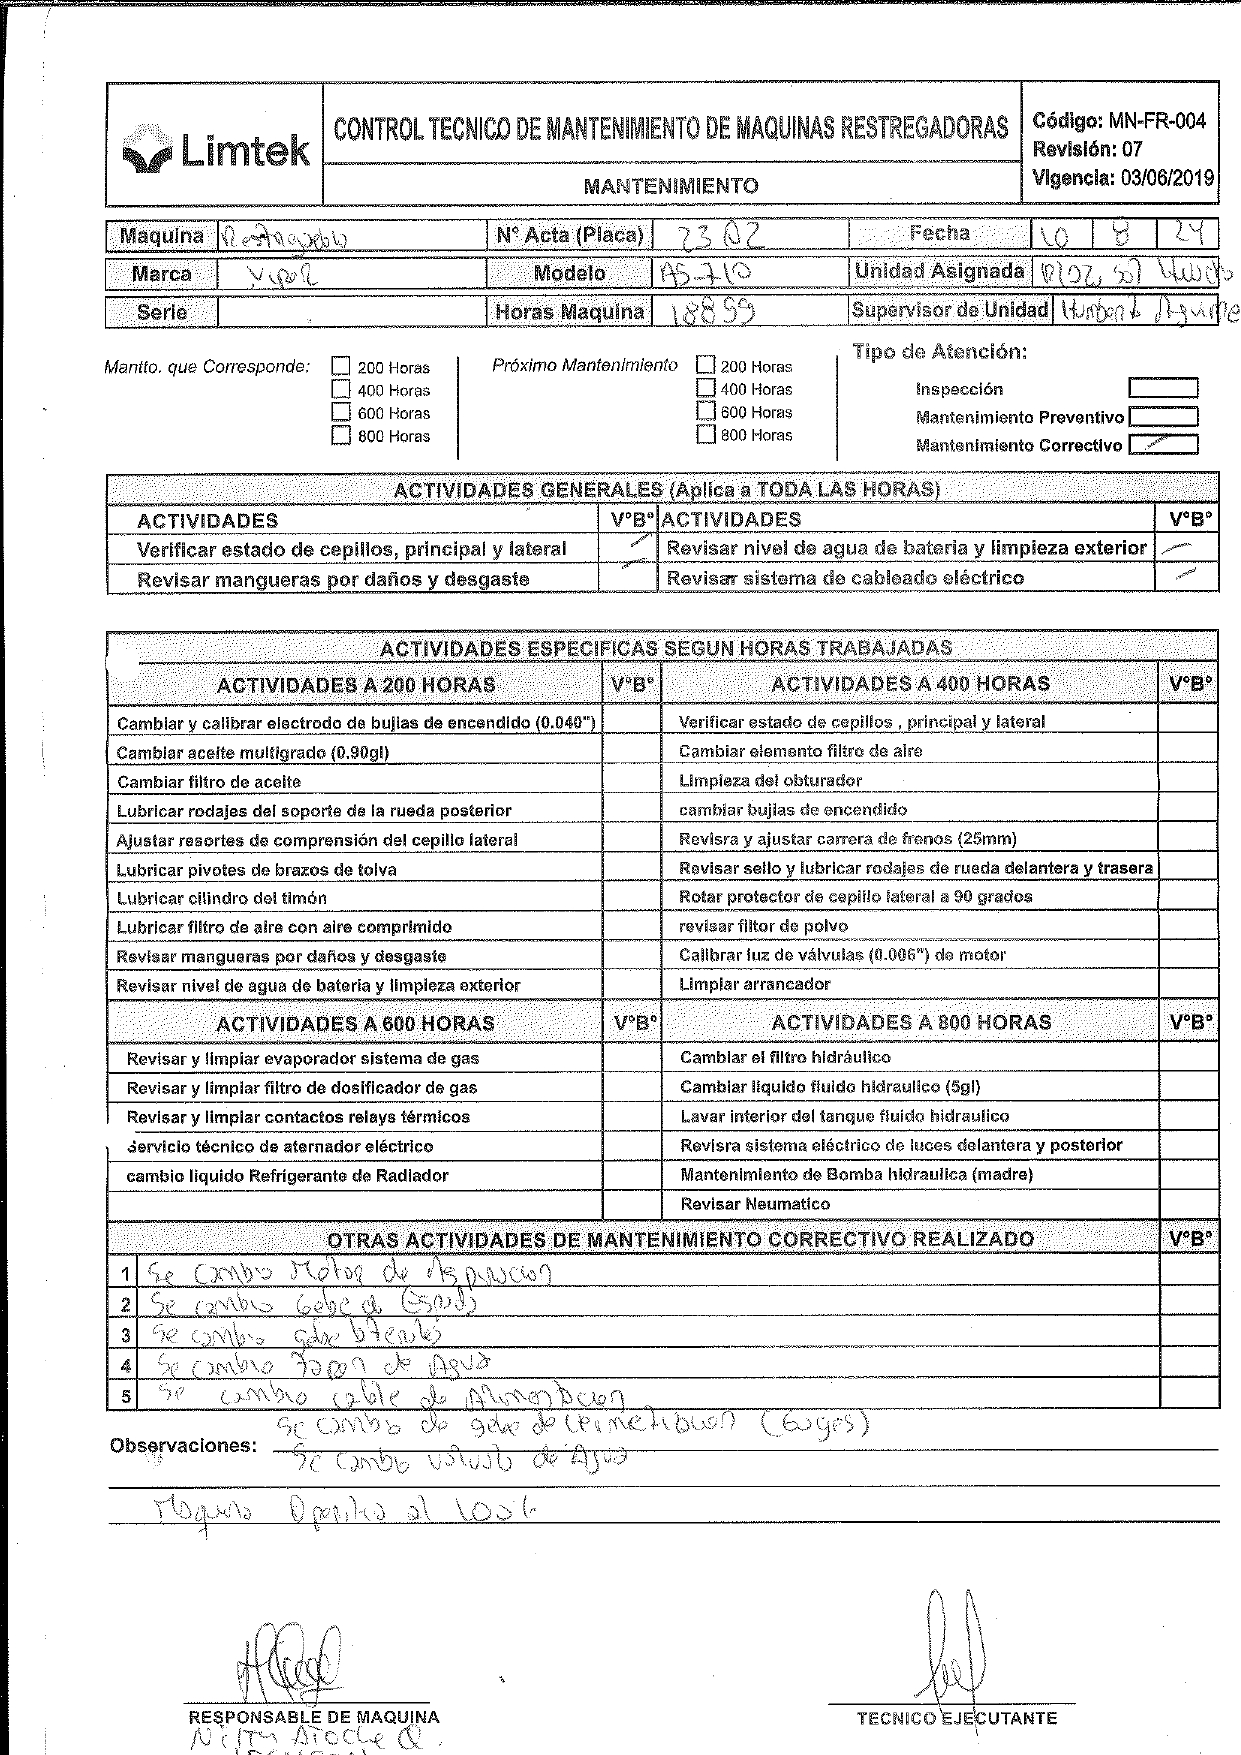 Limtek
CONTROL TECNICO DE MANTENIMIENTO DE MAQUINAS RESTREGADORAS
MANTENIMIENTO
Código: MN-FR-004
Revisión: 07
Vigencia: 03/06/2019
Maquina N° Acta (Placa) 2302 Fecha 10 8 24
Marca Viper Modelo AS-710 Unidad Asignada
Serie Horas Maquina 18899 Supervisor de Unidad
Mantto. que Corresponde: 200 Horas Próximo Mantenimiento 200 Horas Tipo de Atención:
400 Horas 400 Horas Inspección
600 Horas 600 Horas Mantenimiento Preventivo
800 Horas 800 Horas Mantenimiento Correctivo
ACTIVIDADES GENERALES (Aplica a TODA LAS HORAS)
ACTIVIDADES V°B° ACTIVIDADES V°B°
Verificar estado de cepillos, principal y lateral Revisar nivel de agua de bateria y limpieza exterior
Revisar mangueras por daños y desgaste Revisar sistema de cableado eléctrico
ACTIVIDADES ESPECIFICAS SEGUN HORAS TRABAJADAS
ACTIVIDADES A 200 HORAS V°B° ACTIVIDADES A 400 HORAS V°B°
Cambiar y calibrar electrodo de bujias de encendido (0.040") Verificar estado de cepillos , principal y lateral
Cambiar aceite multigrado (0.90gl) Cambiar elemento filtro de aire
Cambiar filtro de aceite Limpieza del obturador
Lubricar rodajes del soporte de la rueda posterior cambiar bujias de encendido
Ajustar resortes de comprensión del cepillo lateral Revisra y ajustar carrera de frenos (25mm)
Lubricar pivotes de brazos de tolva Revisar sello y lubricar rodajes de rueda delantera y trasera
Lubricar cilindro del timón Rotar protector de cepillo lateral a 90 grados
Lubricar filtro de aire con aire comprimido revisar filtor de polvo
Revisar mangueras por daños y desgaste Calibrar luz de válvulas (0.006") de motor
Revisar nivel de agua de bateria y limpieza exterior Limpiar arrancador
ACTIVIDADES A 600 HORAS V°B° ACTIVIDADES A 800 HORAS V°B°
Revisar y limpiar evaporador sistema de gas Cambiar el filtro hidráulico
Revisar y limpiar filtro de dosificador de gas Cambiar liquido fluido hidraulico (5gl)
Revisar y limpiar contactos relays térmicos Lavar interior del tanque fluido hidraulico
Servicio técnico de aternador eléctrico Revisra sistema eléctrico de luces delantera y posterior
cambio liquido Refrigerante de Radiador Mantenimiento de Bomba hidraulica (madre)
Revisar Neumatico
OTRAS ACTIVIDADES DE MANTENIMIENTO CORRECTIVO REALIZADO V°B°
1 Se cambio Motor de Aspiracion
2 Se cambio
3 Se cambio
4 Se cambio Tapon de Agua
5 Se cambio cable de Alimentacion
Se cambio de
Observaciones: Se cambio de Agua
Maquina al 100%
RESPONSABLE DE MAQUINA TECNICO EJECUTANTE